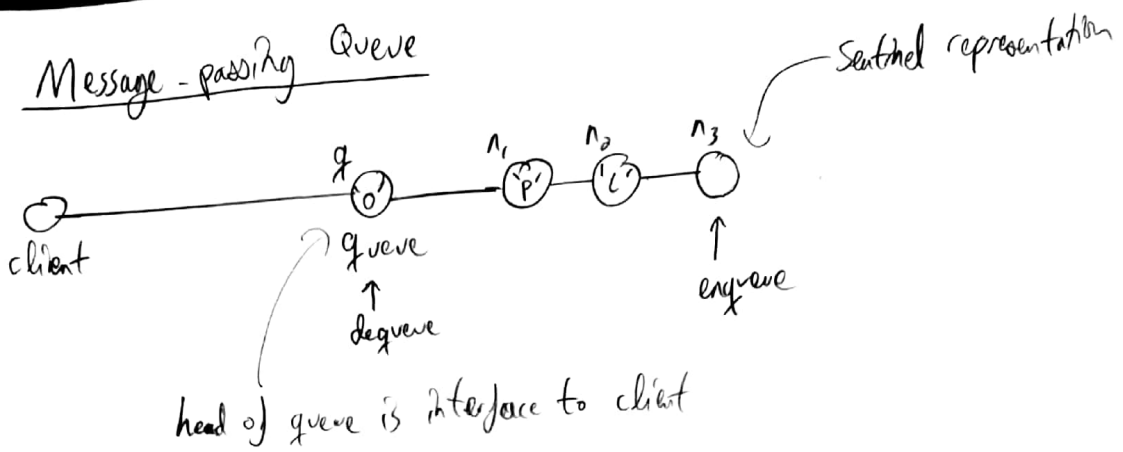 Message-passing Queue
Sentinel representation
q
n₁
n₂
n₃
'o'
'p'
'l'
client
queue
dequeue
enqueue
head of queue is interface to client